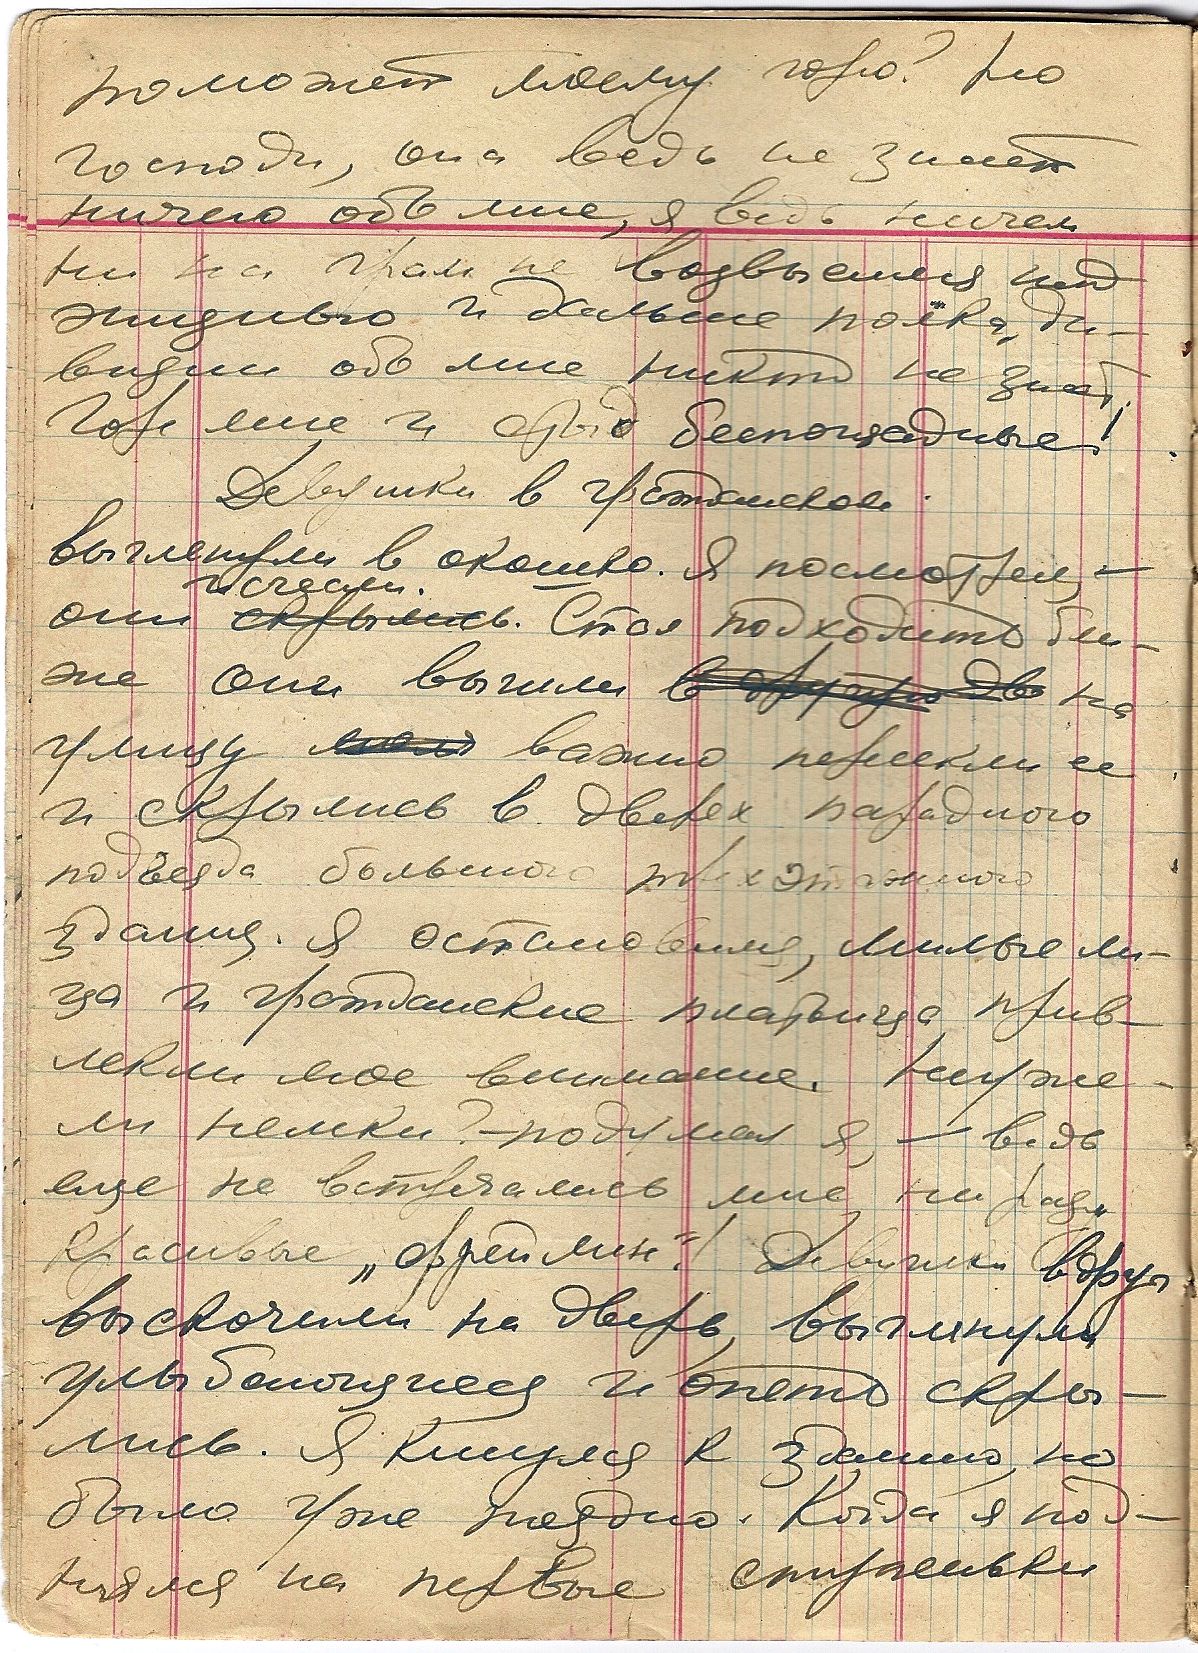 поможет моему горю? Но
господи, она ведь не знает
ничего обо мне, я ведь ничем
ни на грам не возвысился над
жизнью и дальше полка, ди-
визии обо мне никто не знает.
Горе мне и стыд беспощадные!
Девушки в гражданском
выглянули в окошко. Я посмотрел, –
исчезли.
они скрылись. Стал подходить бли-
же они вышли в другую две на
улицу важно пересекли ее
и скрылись в дверях парадного
подъезда большого трехэтажного
здания. Я остановился, милые ли-
ца и гражданские платьица прив-
лекли мое внимание. Неуже-
ли немки? – подумал я, – ведь
еще не встречались мне ни разу
красивые „фреймин“! Девушки вдруг
выскочили на дверь, выглянули
улыбающиеся и опять скры-
лись. Я кинулся к зданию, но
было уже поздно. Когда я под-
нялся на первые ступеньки